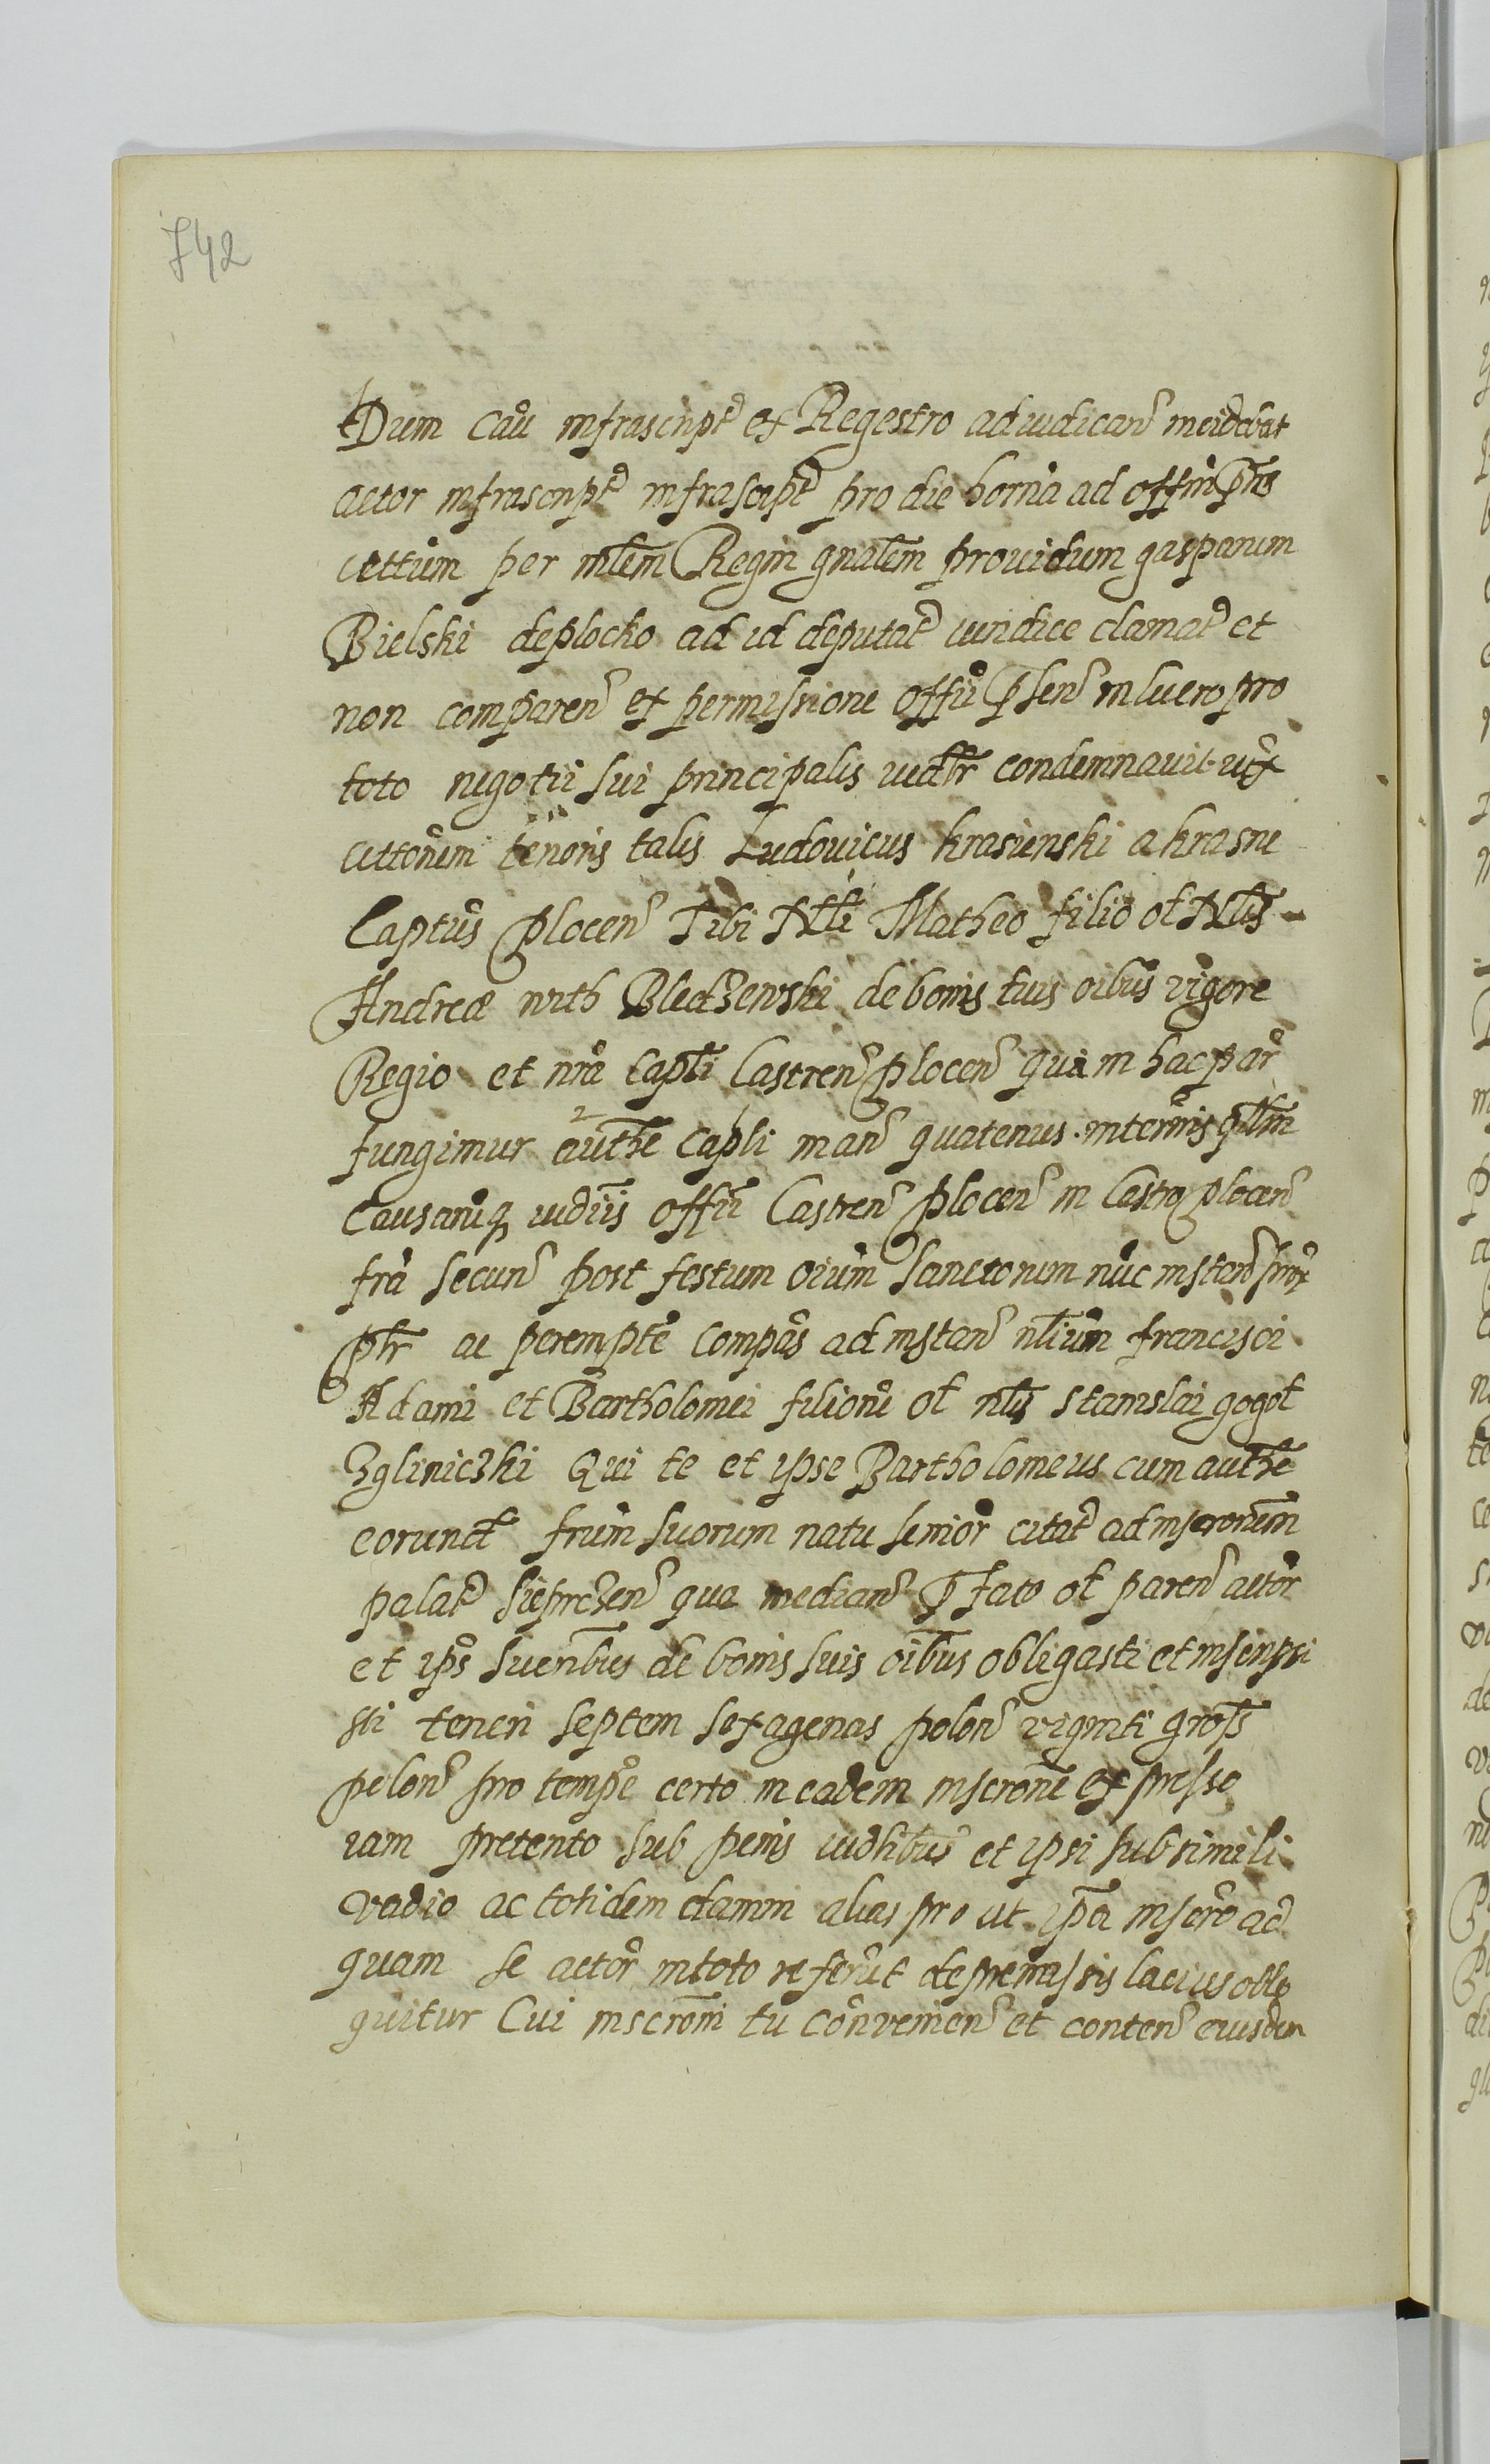 742
Dum cau infrascript ex Regestro adiudican incidebat
actor infrascript infrascript pro die horna ad offm pns
cittum per mlem Regni gnalem providum gasparum
Bielski deplocko ad id deputat iuridice clamat et
non comparen ex permissione offii psen in lucro pro
toto negotii sui principalis iudlr condemnavit vix
cittonem tenoris talis Ludovicus krasienski a krasne
Captus plocen Tibi Nbli Matheo filio ol Nblis
Andreæ with Bledzewski de bonis tuis oibus vigore
Regio et nra Capli Castren plocen qua in hac par
fungimur authe Capli man quatenus in terminis qlm
Causarumq iudiis offii Castren plocen in Castro plocen
fra secun post festum oium Sanctorum nuc instan prox
plr ac perempte compas ad instan nlium francisci
Adami et Bartholomei filiorum ol nlis Stanislai gogol
Zgliniczki Qui te et ipse Bartholomeus cum authe
eorund frum suorum natu senior citat ad inscronem
palat sieprczen qua median pfato ol paren actor
et ips suenbus de bonis suis oibus obligasti et inscripsi
sti teneri septem sexagenas polon viginti gross
polon pro tempe certo in eadem inscrone expresso
iam pretento sub penis iudlibus et ipsi sub simili
vadio ac totidem damni alias pro ut ipsa inscro ad
quam se actor in toto referut de premissis lacius oblo
quitur Cui inscroni tu convenien et conten eiusdem